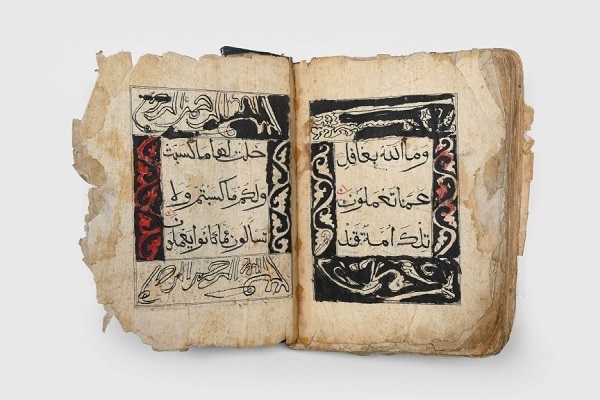 وما الله بغافل
عما تعملون
تلك امة قد
بسم الله الرحمن الرحيم
خلت لها ما كسبت
ولكم ما كسبتم ولا
تسألون عما كانوا يعملون
بسم الله الرحمن الرحيم